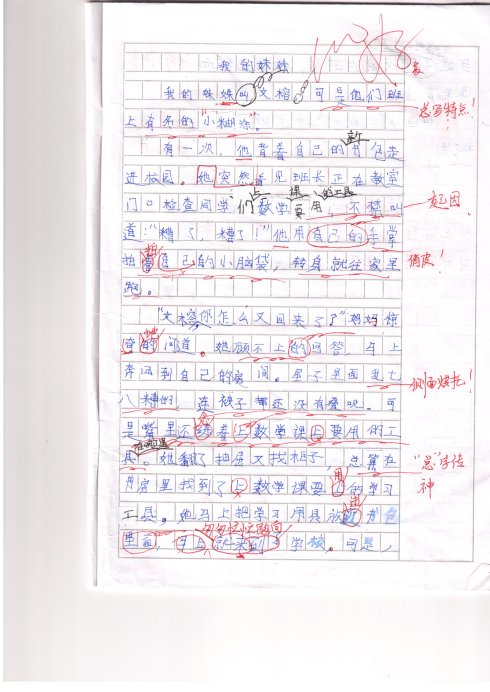 我的妹妹
我的妹妹叫文榕，可是他们班
总写特点！
上有名的“小糊涂”。
新
有一次，他背着自己的书包走
进校园。她突然看见班长正在教室
上课的工具
门口检查同学们数学要用，不禁叫
起因
道：“糟了，糟了！”他用自己的手掌
拍自己的小脑袋，转身就往家里
俏皮！
跑。
“文榕你怎么又回来了？”妈妈惊
奇的问道。她顾不上的回答，马上
奔回到自己的房间。屋子里面乱七
侧面烘托！
八糟的，连被子都还没有叠呢。可
是嘴里还念着上数学课上要用的工
具。她翻了抽屉又找柜子，总算在
“总”字传神
书房里找到了上数学课要用的学习
工具。她马上把学习用具放到书包
里面，马上就来到学校。可是，